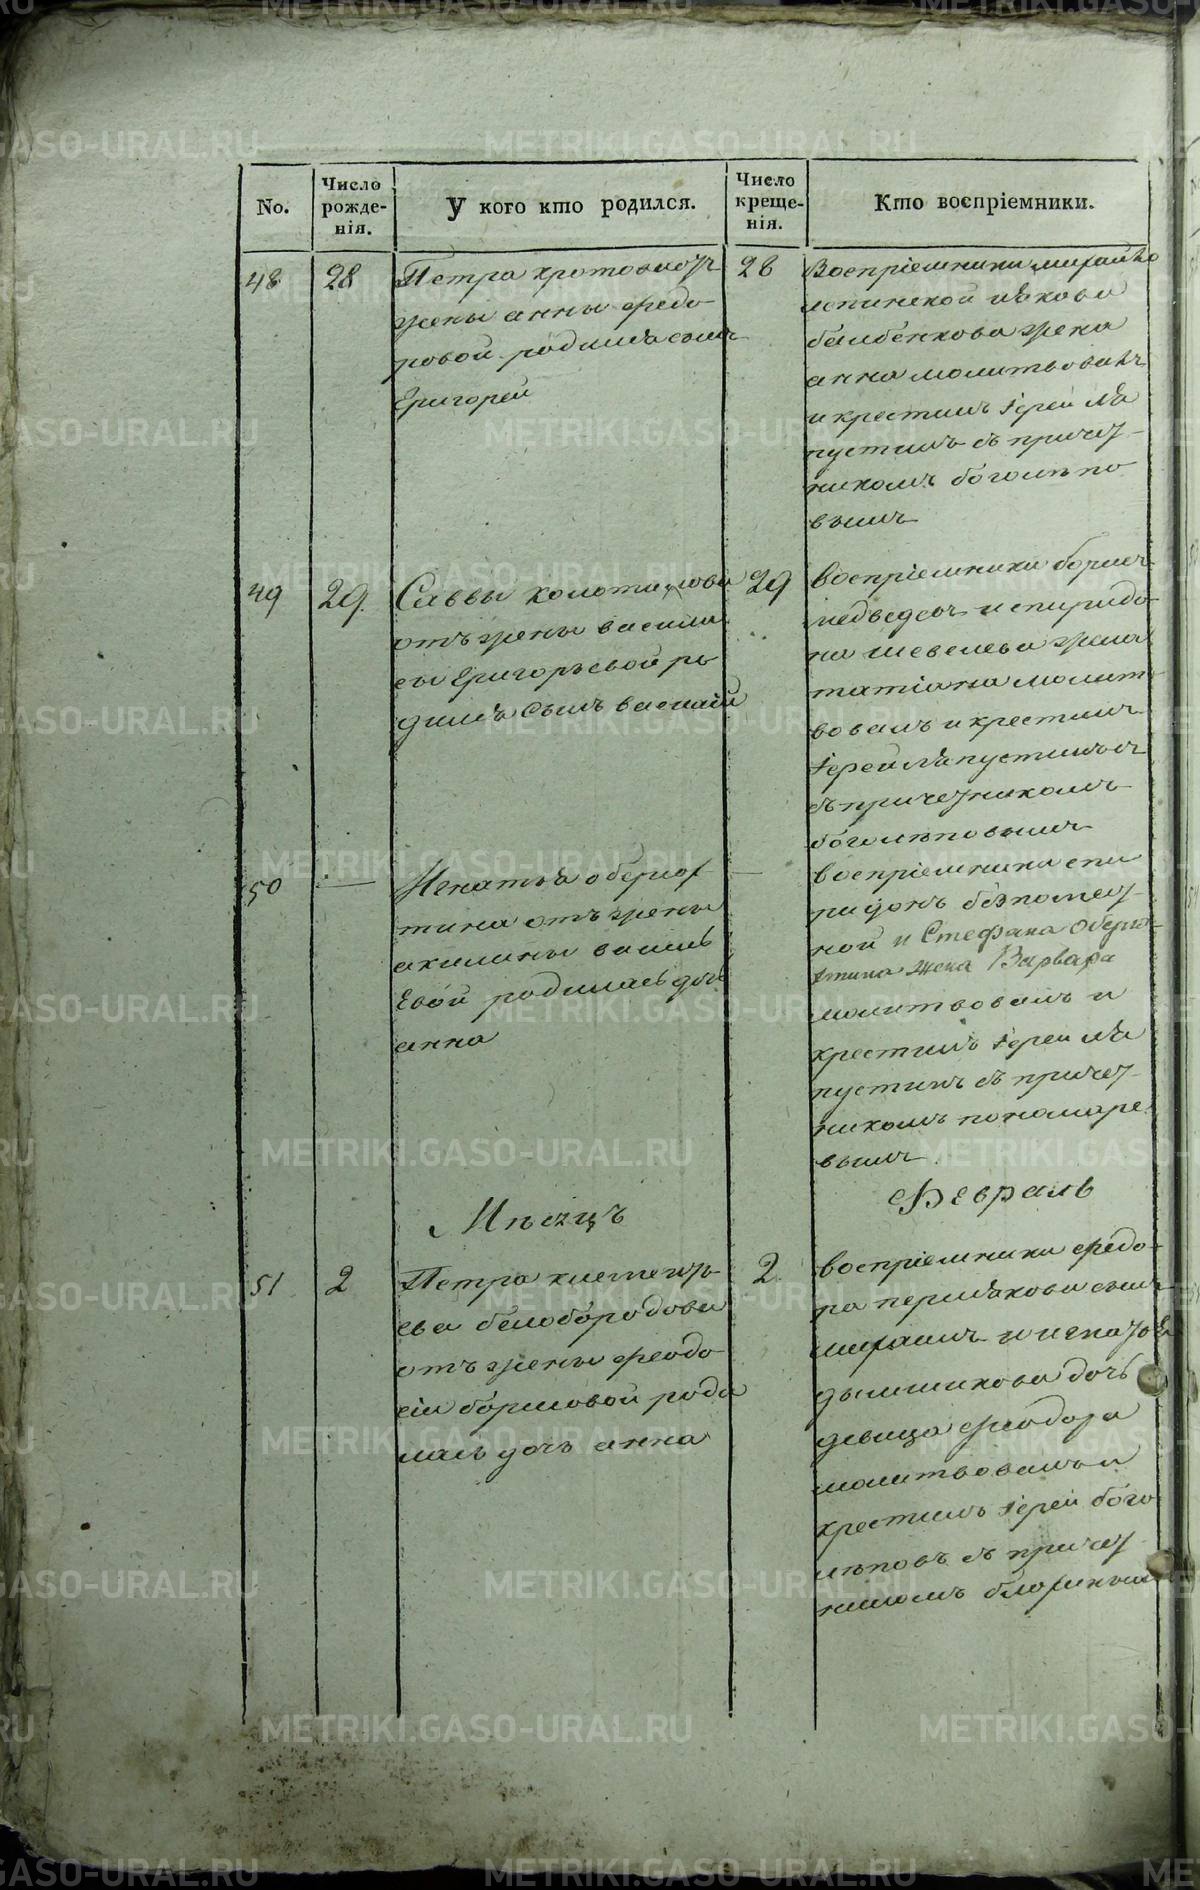 No.
Число рожде-нія.
У кого кто родился.
Число креще-нія.
Кто воспріемники.
48
28
Петра
жены анны федо
ровой родился сынъ
Григорей
28
Воспріемники михайло
и якова
жена
анна молитвовалъ
и крестилъ Іерей Ла
пустинъ съ причет
никомъ боголепо
вымъ
49
29
Саввы
отъ жены васили
сы Григорьевой ро
дился сынъ василій
29
Воспріемники борисъ
медведевъ и спиридо
на шевелева жена
татіана молит
вовалъ и крестилъ
Іерей Лапустинъ
съ причетникомъ
боголеповымъ
50
—
Игнатья оберюх
тина отъ жены
акилины василь
Евой родилась дочь
анна
—
воспріемники спи
ридонъ
ной и Стефана Оберю
хтина жена Варвара
молитвовалъ и
крестилъ Іерей Ла
пустинъ съ причет
никомъ пономаре
вымъ
Мѣсяцъ
Февраль
51
2
Петра клементь
ева белобородова
отъ жены феодо
сіи борисовой роди
лась дочь анна
2
воспріемники федо
ра пермякова сынъ
и игнатья
дымшакова дочь
девица феодора
молитвовалъ и
крестилъ Іерей бого
леповъ съ причет
никомъ
METRIKI.GASO-URAL.RU